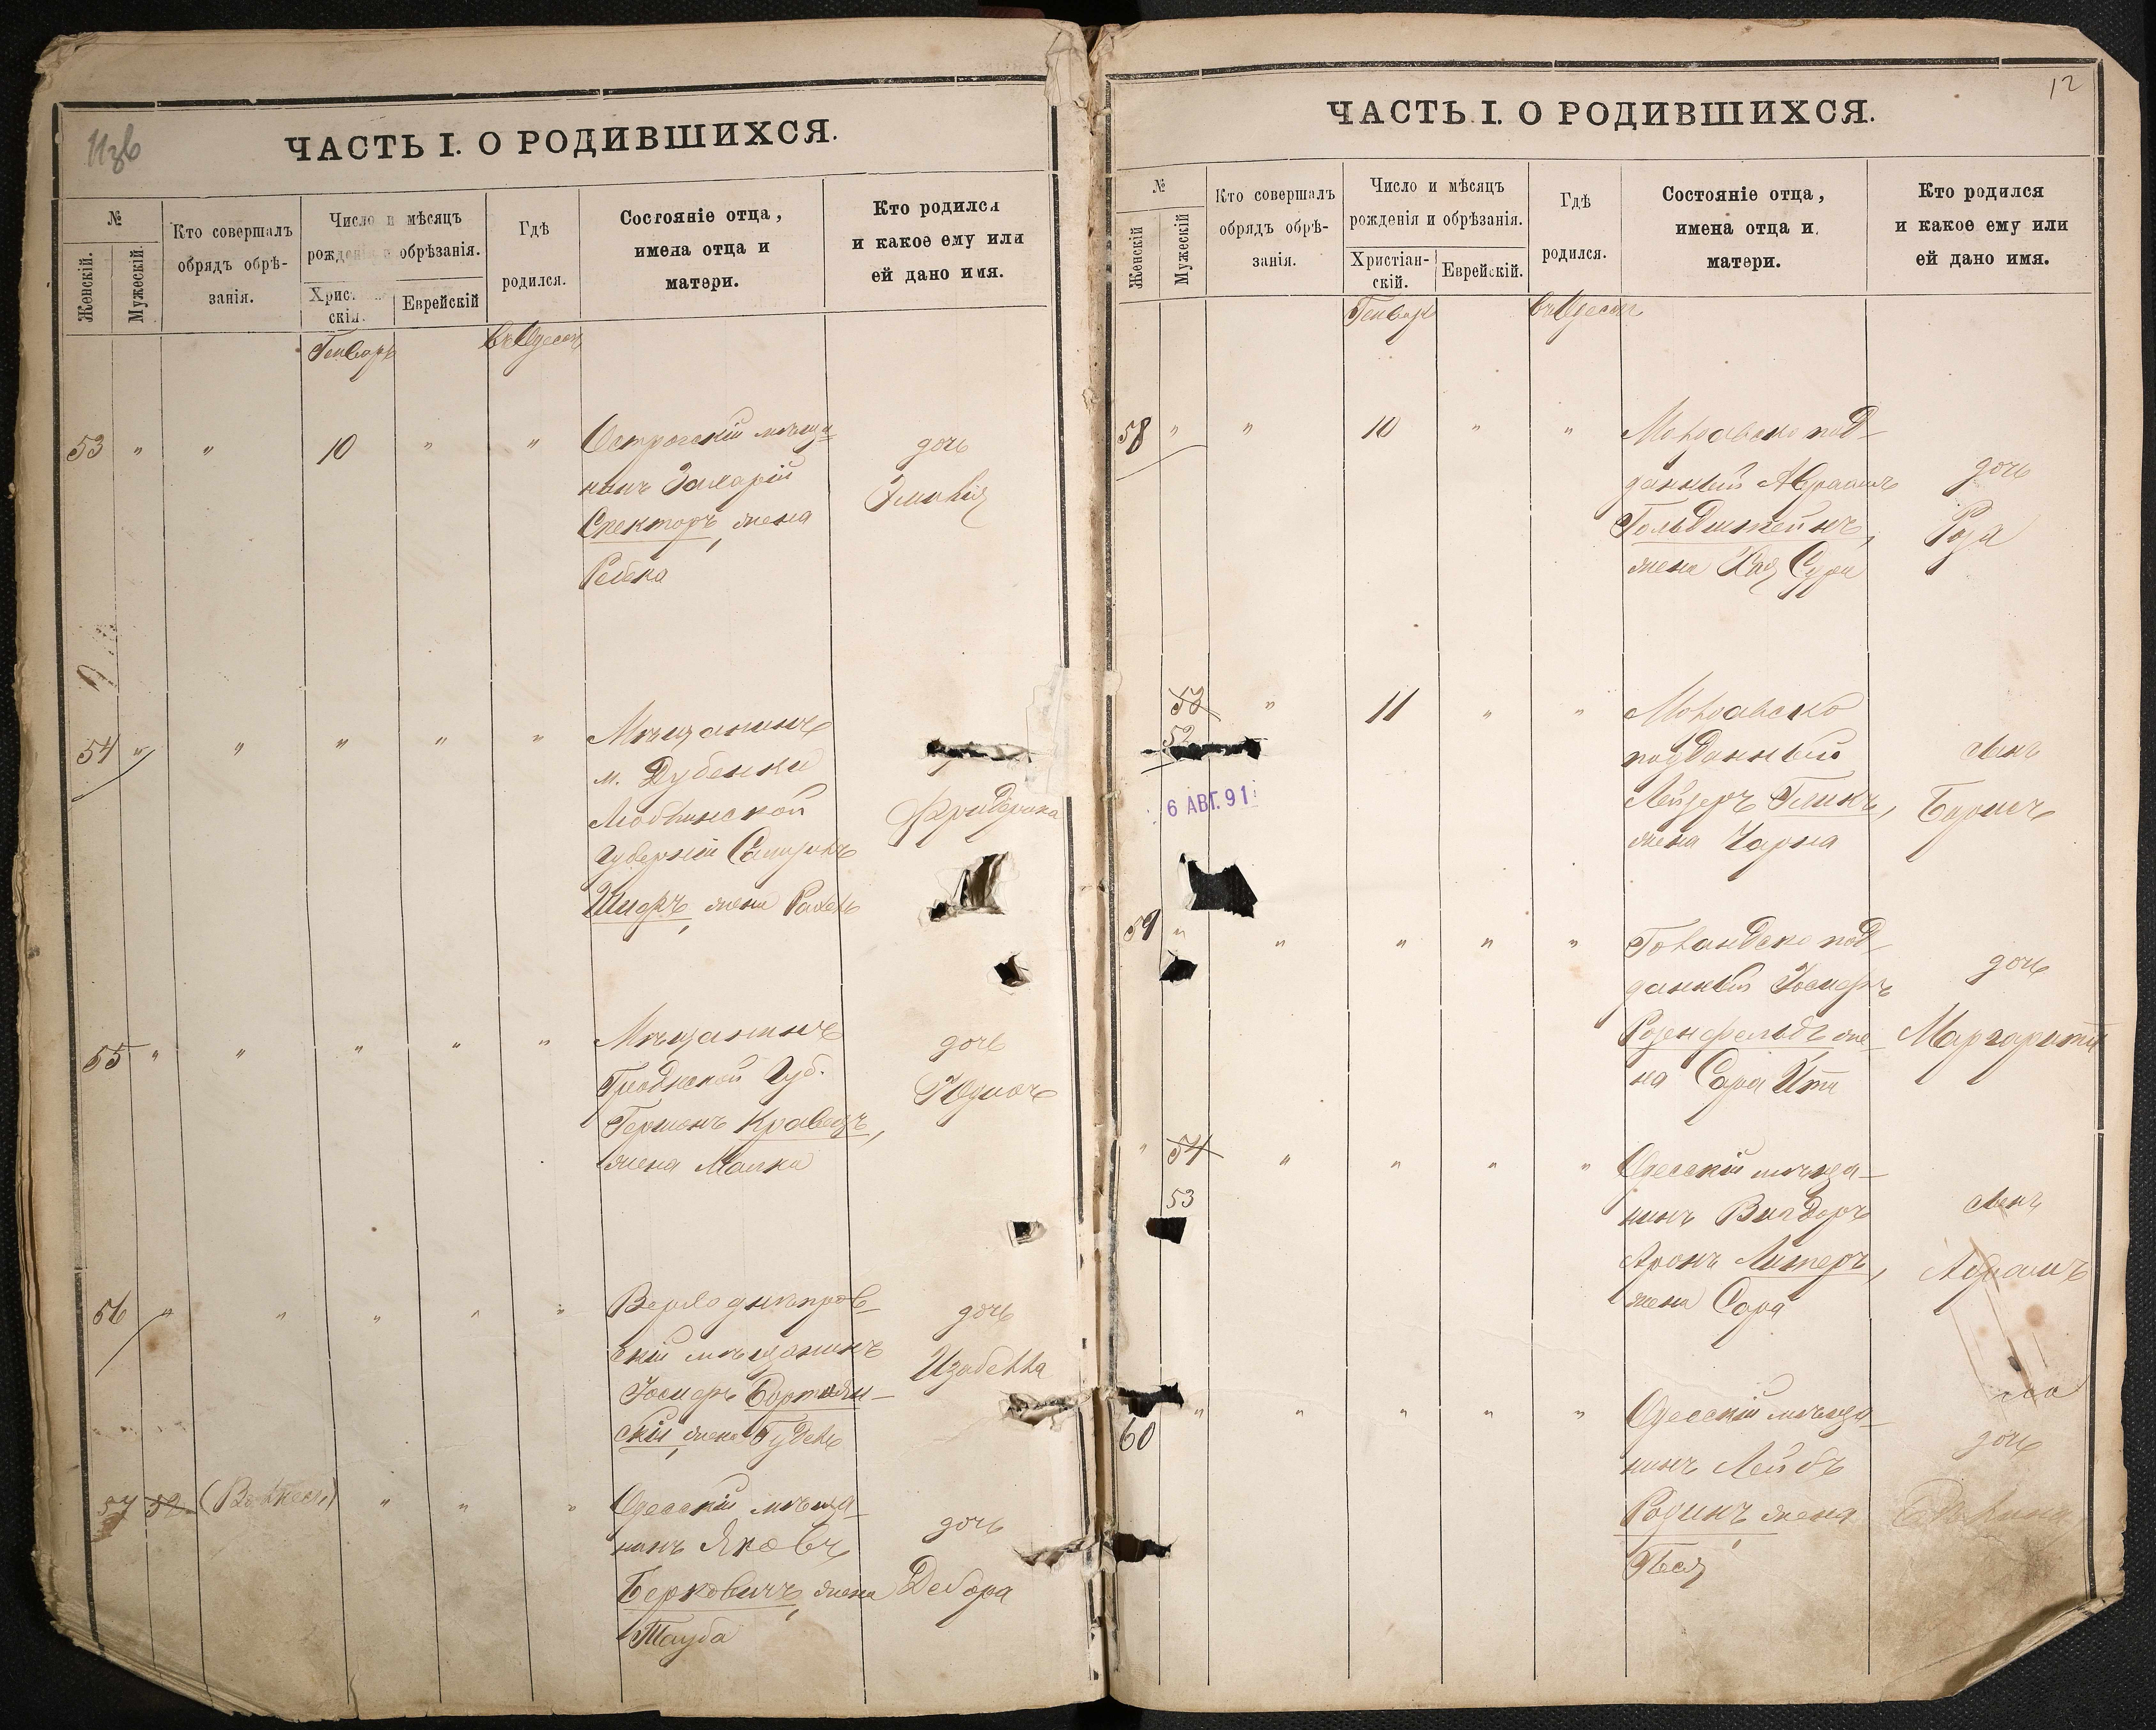 Изв
ЧАСТЬ I. О РОДИВШИХСЯ.
№
Женскій.
Мужескій.
Кто совершалъ
обрядъ обрѣ-
занія.
Число и мѣсяцъ
рожденія и обрѣзанія.
Христіан-
скій.
Еврейскій
Гдѣ
родился.
Состояніе отца,
имена отца и
матери.
Кто родился
и какое ему или
ей дано имя.
Генварь
въ Одессѣ
53 " " 10 " "
Острогскій мѣща-
нинъ Захарій
Спекторъ, жена
Ревека
дочь
Эмилія
54 " " " " "
Мѣщанинъ
м. Дубенки
Люблинской
Губерніи
жена Рахель
Фридерика
55 " " " " "
Мѣщанинъ
Гродненской Губ.
Германъ Кравецъ,
жена Малка
дочь
56 " " " " "
Верходнѣпров-
скій мѣщанинъ
Іосифъ
скій, жена Гудель
дочь
Изабелла
57 52 " " "
Одесскій мѣща-
нинъ Яковъ
Берковичъ, жена
Тауба
дочь
Дебора
12
ЧАСТЬ I. О РОДИВШИХСЯ.
№
Женскій
Мужескій
Кто совершалъ
обрядъ обрѣ-
занія.
Число и мѣсяцъ
рожденія и обрѣзанія.
Христіан-
скій.
Еврейскій.
Гдѣ
родился.
Состояніе отца,
имена отца и
матери.
Кто родился
и какое ему или
ей дано имя.
Генварь
въ Одессѣ
58 " " 10 " "
Молдавско под-
данный Абрамъ
Гольдштейнъ,
жена Хая Сура
дочь
Роза
53 " 11 " "
52
6 АВГ. 91
Молдавско
подданный
Лейзеръ Гликъ,
жена Чарна
сынъ
Борисъ
59 " " " " "
Голандско под-
данный Іосифъ
Розенфельдъ же-
на Сара Ита
дочь
Маргарита
" 54 " " " "
53
Одесскій мѣща-
нинъ Вигдоръ
Аронъ Литеръ,
жена Сара
сынъ
Абрамъ
60 " " " " "
Одесскій мѣща-
нинъ Лейбъ
Родинъ, жена
Песя
дочь